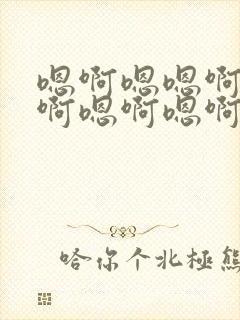 嗯啊嗯嗯啊
啊嗯啊嗯啊
哈你个北極熊